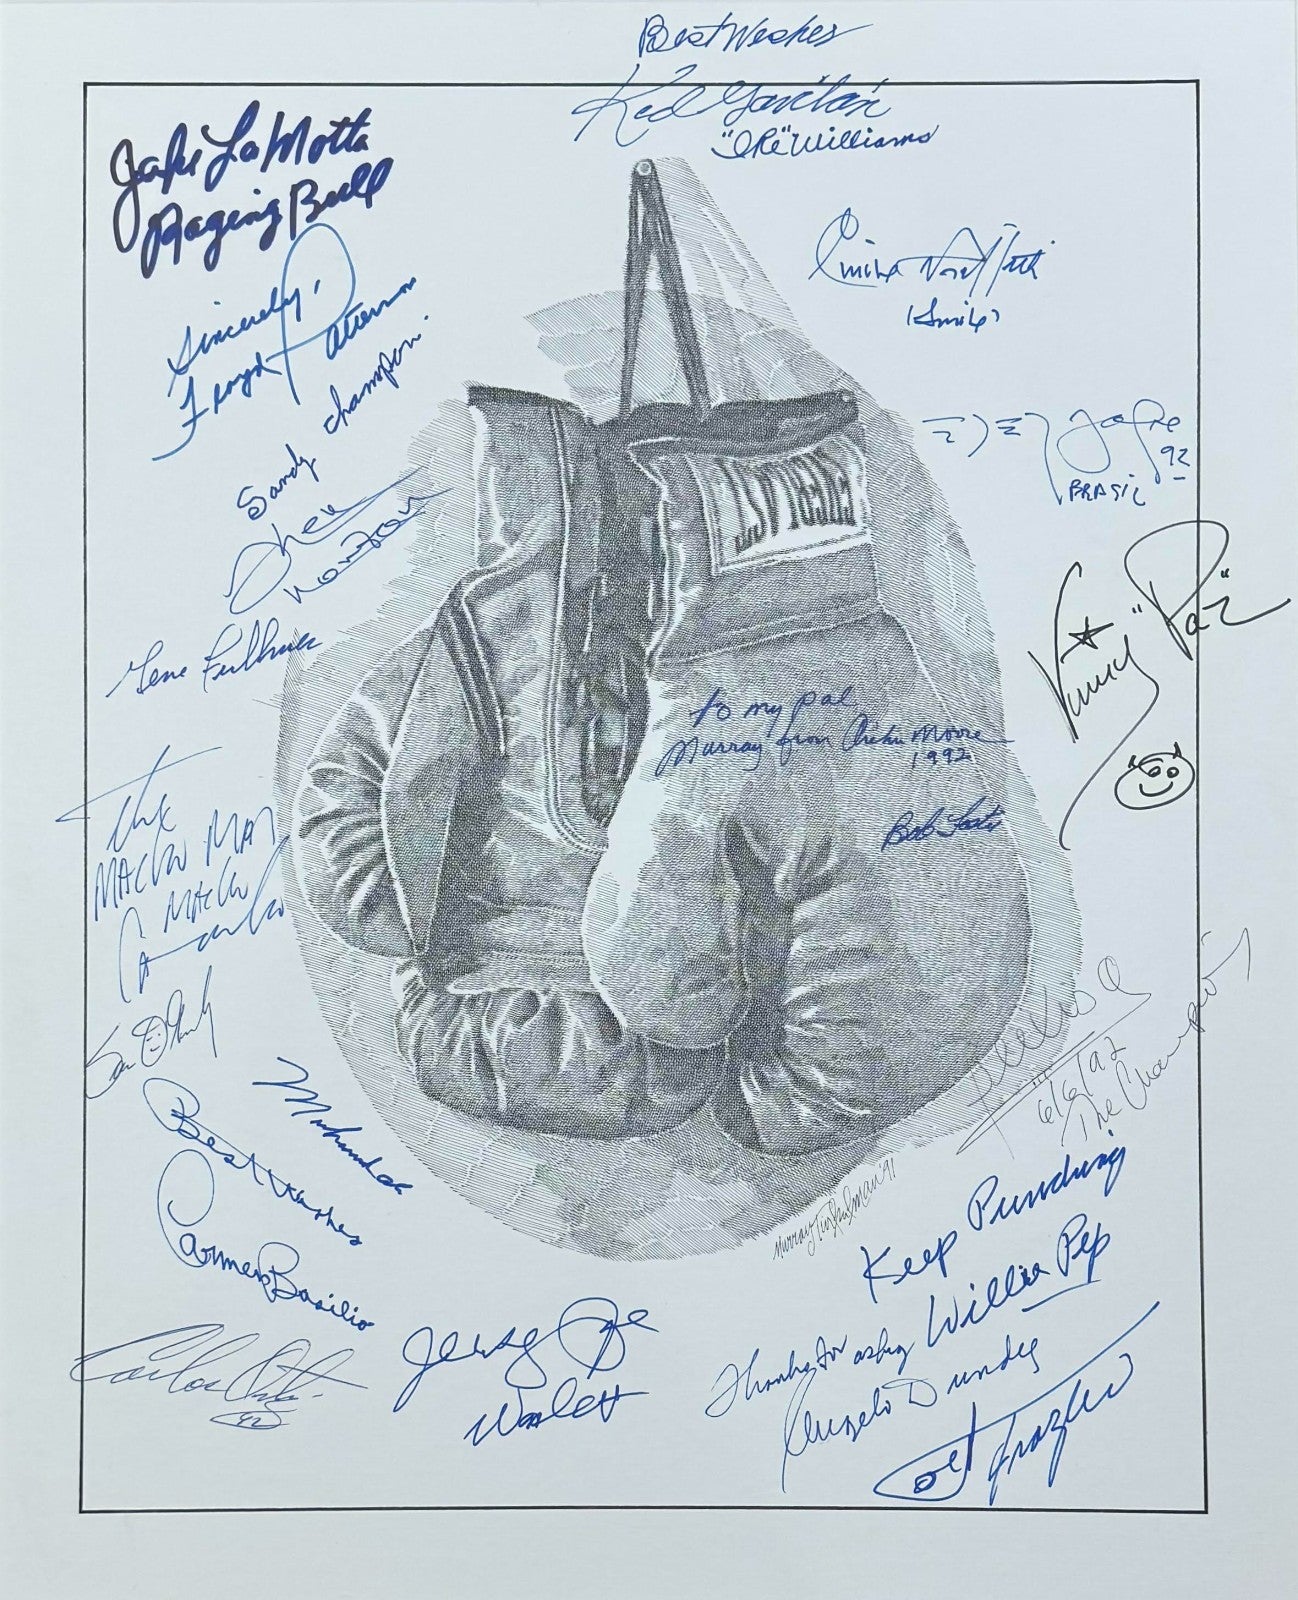 Best Wishes
Kid Gavilan
"Ike" Williams
Jake LaMotta
Raging Bull
Sincerely,
Floyd Patterson
Emile Griffith
(Smile)
Sandy
champion.
Ken
Norton
Jofre
92
BRASIL
EVERLAST
Vinny "Paz"
Gene Fullmer
to my pal
Murray from Archie Moore
1992
Bob Foster
The
MACHO MAN
MACHO
Camacho
Alexis A
6/6/92
The Champion
Muhammad
Best Wishes
Carmen Basilio
Murray Tinkelman '91
Keep Punching
Willie Pep
Carlos Ortiz
92
Jersey Joe
Walcott
Thanks for asking
Angelo Dundee
Joe Frazier